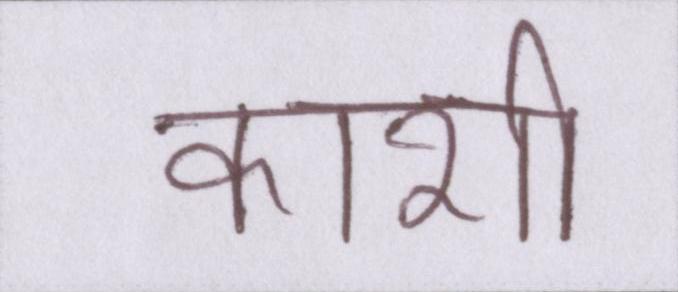 काशी